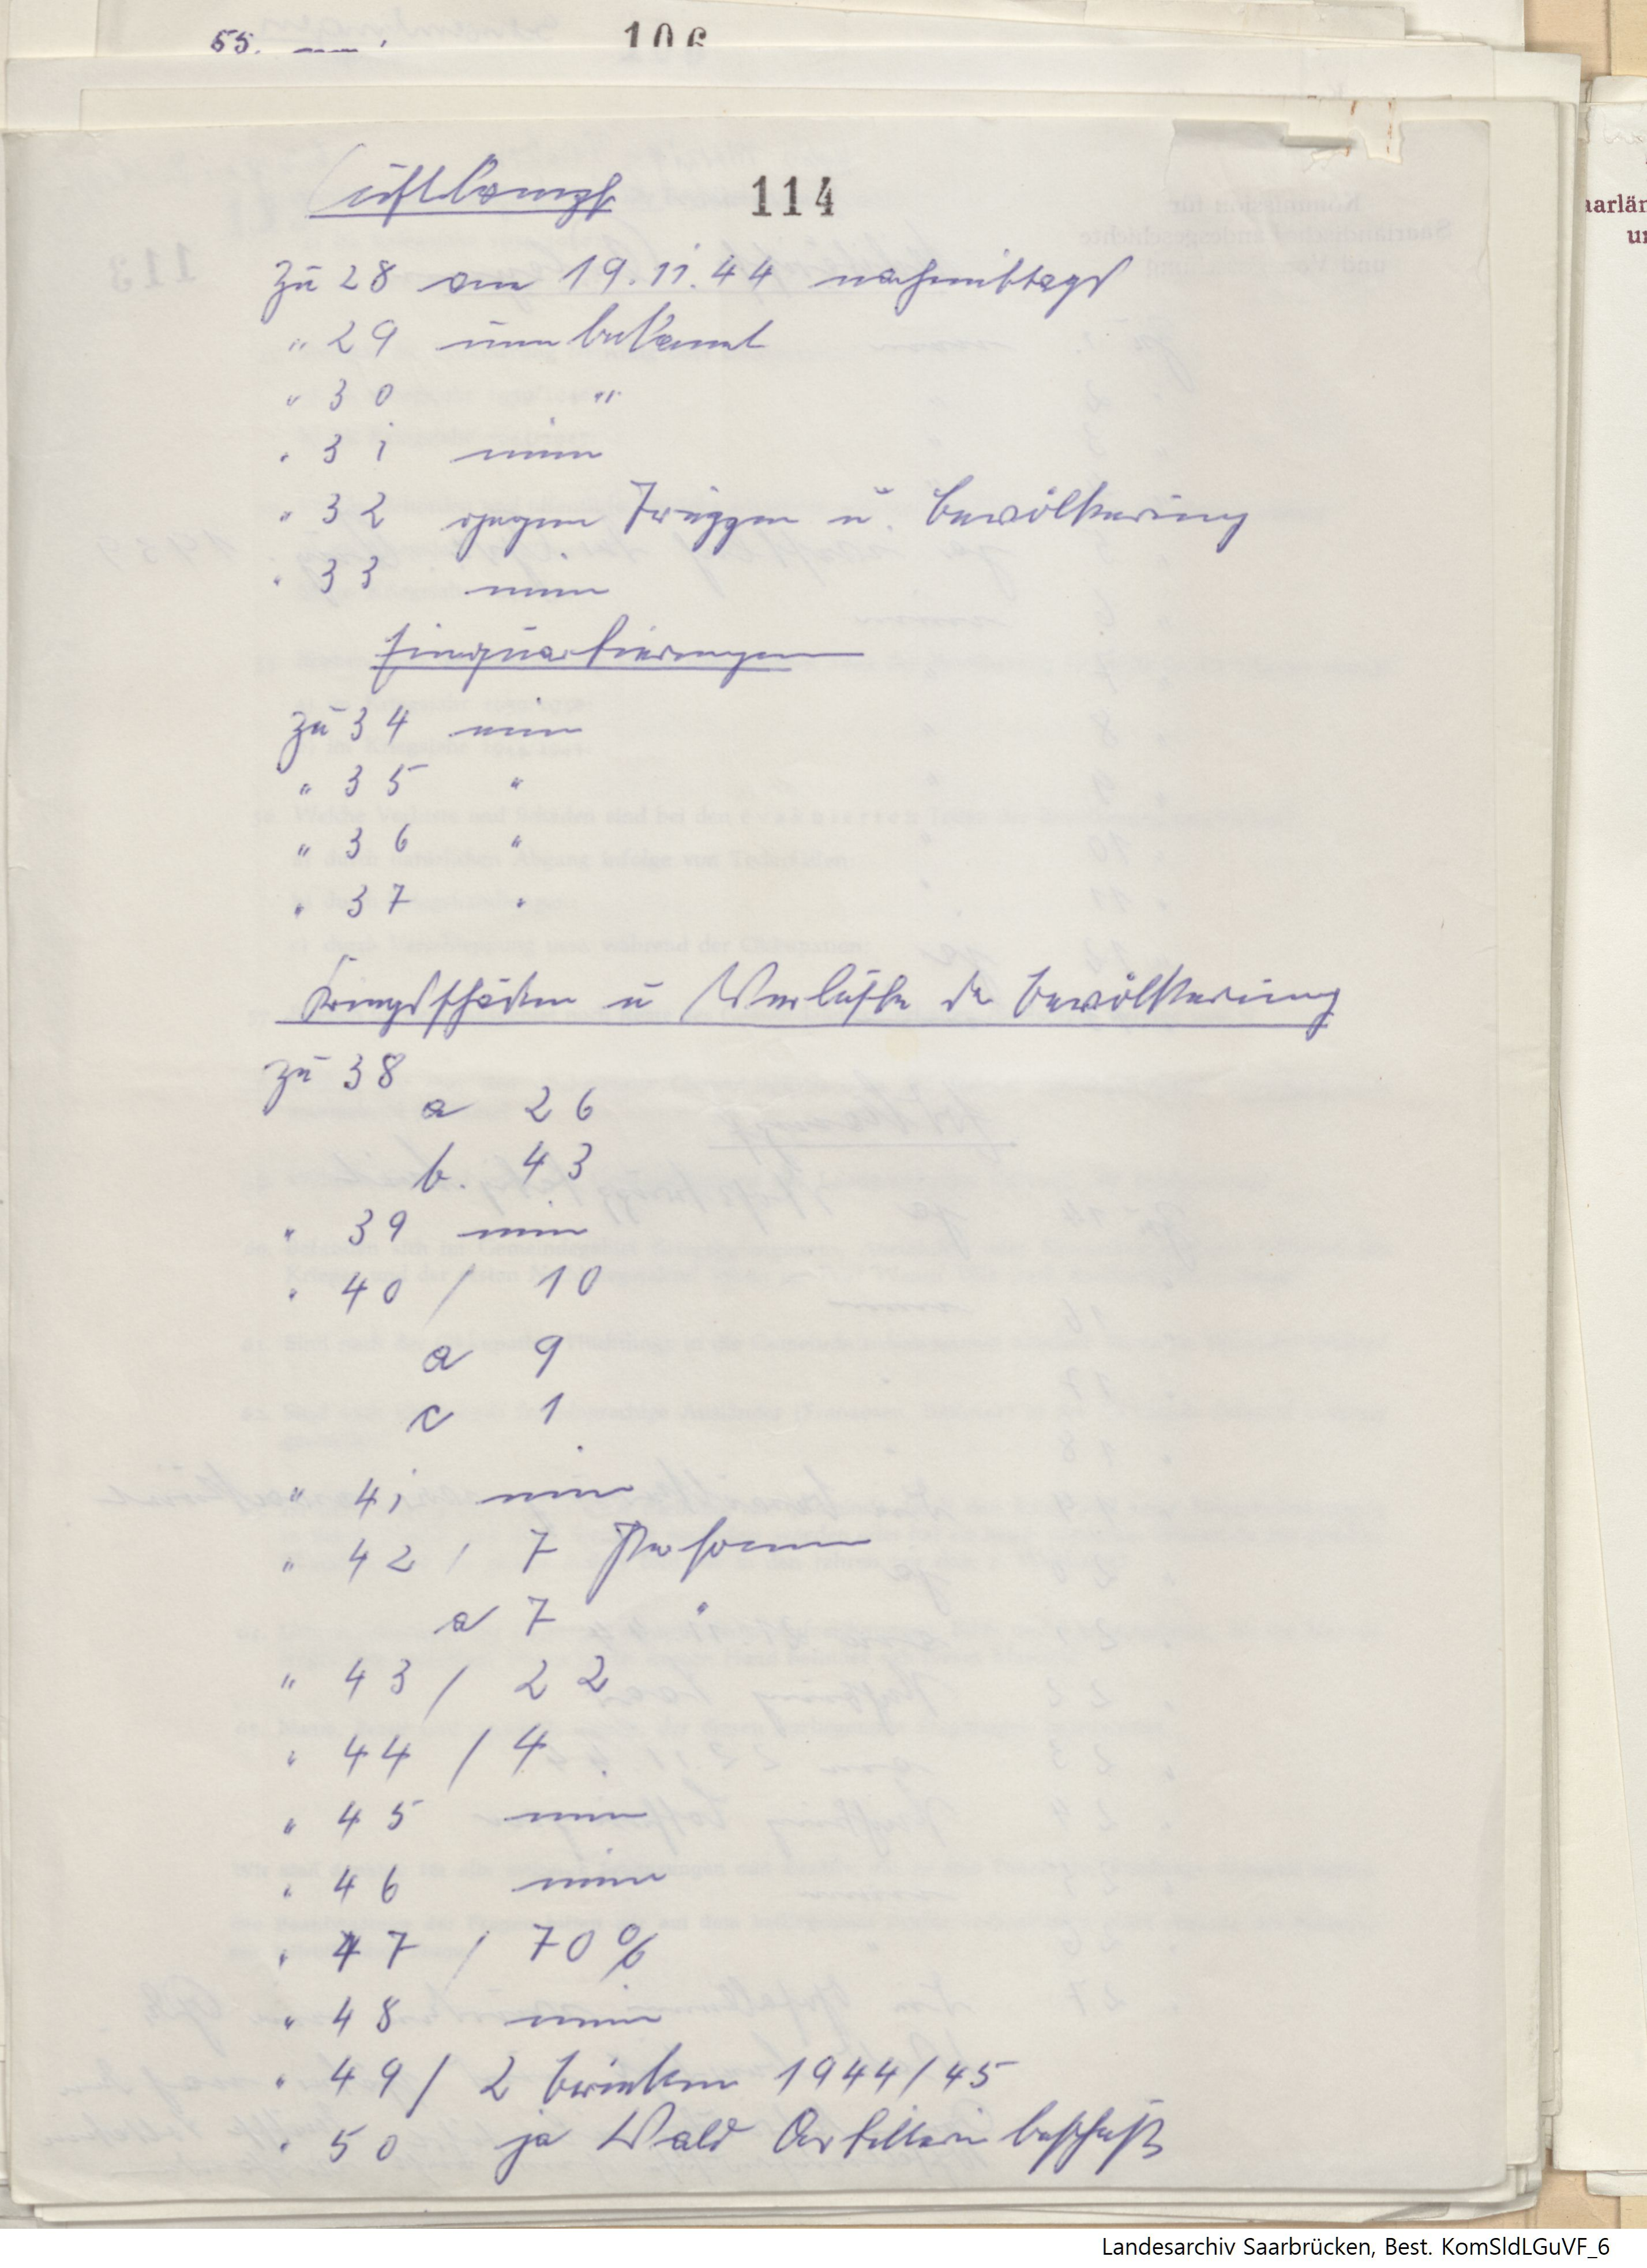 55.
106
Luftkampf 114
zu 28 am 19.11.44 nachmittags
" 29 unbekannt
" 30 "
" 31 nein
" 32 gegen Truppen u. Bevölkerung
" 33 nein
Einquartierungen
zu 34 nein
" 35 "
" 36 "
" 37 "
Kriegsschäden u Verluste der Bevölkerung
zu 38
a 26
b. 43
" 39 nein
" 40 / 10
a 9
c 1
" 41 nein
" 42 / 7 Personen
a 7 "
" 43 / 22
" 44 / 4
" 45 nein
" 46 nein
" 47 / 70 %
" 48 nein
" 49 / 2 Brücken 1944/45
" 50 ja Wald Artilleriebeschuß
Landesarchiv Saarbrücken, Best. KomSldLGuVF_6